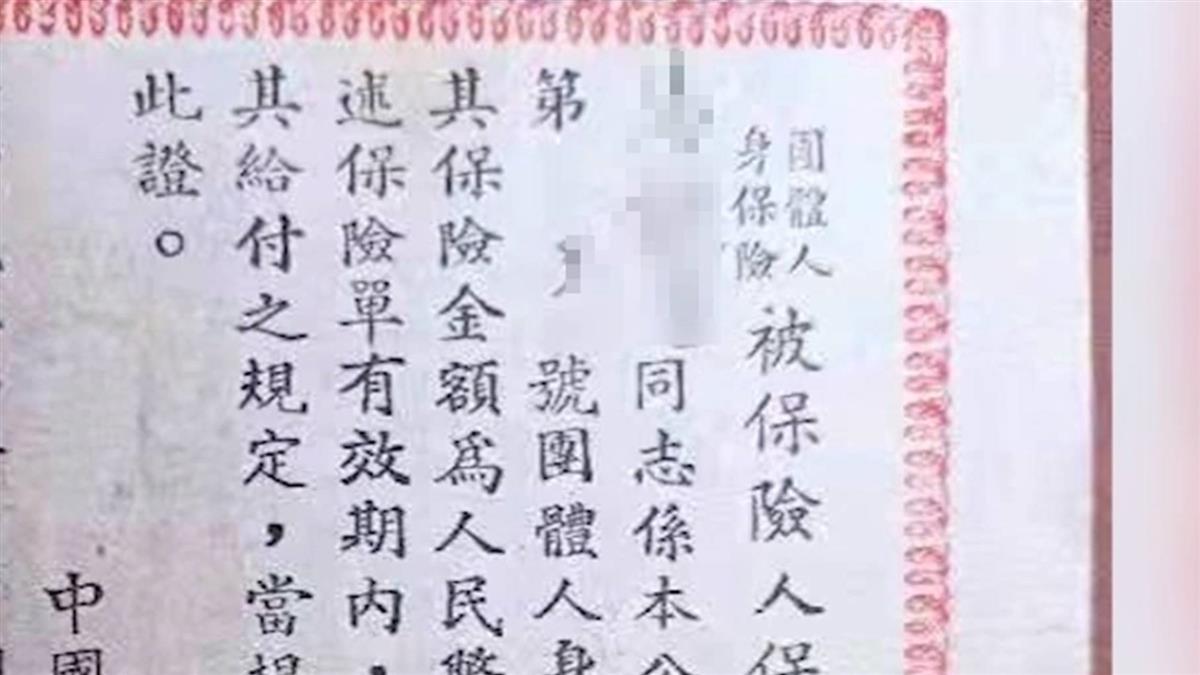 團體人
身保險
被保險人保
同志係本公
第
號團體人身
其保險金額為人民幣
述保險單有效期內，
其給付之規定，當
此證。
中國